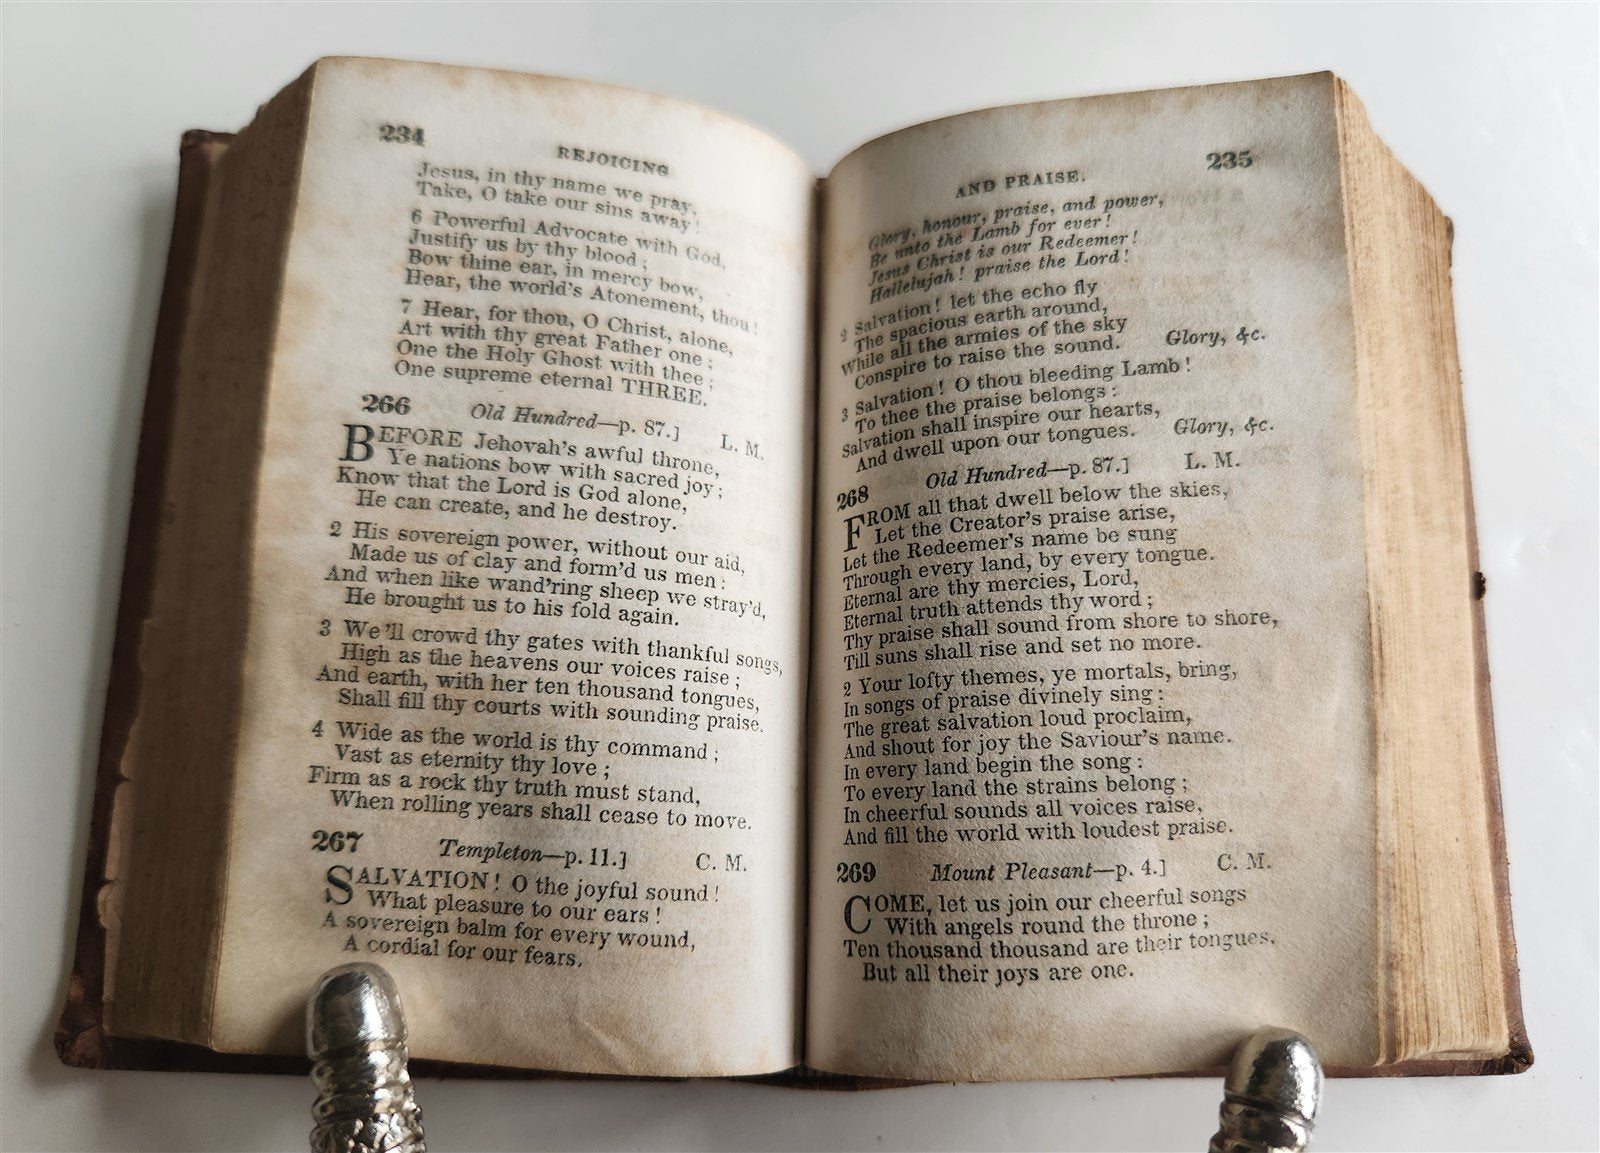 234
REJOICING
Jesus, in thy name we pray,
Take, O take our sins away!
6 Powerful Advocate with God,
Justify us by thy blood;
Bow thine ear, in mercy bow,
Hear, the world's Atonement, thou!
7 Hear, for thou, O Christ, alone,
Art with thy great Father one;
One the Holy Ghost with thee;
One supreme eternal THREE.
266 Old Hundred—p. 87.] L. M.
BEFORE Jehovah's awful throne,
Ye nations bow with sacred joy;
Know that the Lord is God alone,
He can create, and he destroy.
2 His sovereign power, without our aid,
Made us of clay and form'd us men:
And when like wand'ring sheep we stray'd,
He brought us to his fold again.
3 We'll crowd thy gates with thankful songs,
High as the heavens our voices raise;
And earth, with her ten thousand tongues,
Shall fill thy courts with sounding praise.
4 Wide as the world is thy command;
Vast as eternity thy love;
Firm as a rock thy truth must stand,
When rolling years shall cease to move.
267 Templeton—p. 11.] C. M.
SALVATION! O the joyful sound!
What pleasure to our ears!
A sovereign balm for every wound,
A cordial for our fears.
AND PRAISE.
235
Glory, honour, praise, and power,
Be unto the Lamb for ever!
Jesus Christ is our Redeemer!
Hallelujah! praise the Lord!
2 Salvation! let the echo fly
The spacious earth around,
While all the armies of the sky
Conspire to raise the sound. Glory, &c.
3 Salvation! O thou bleeding Lamb!
To thee the praise belongs:
Salvation shall inspire our hearts,
And dwell upon our tongues. Glory, &c.
268 Old Hundred—p. 87.] L. M.
FROM all that dwell below the skies,
Let the Creator's praise arise,
Let the Redeemer's name be sung
Through every land, by every tongue.
Eternal are thy mercies, Lord,
Eternal truth attends thy word;
Thy praise shall sound from shore to shore,
Till suns shall rise and set no more.
2 Your lofty themes, ye mortals, bring,
In songs of praise divinely sing:
The great salvation loud proclaim,
And shout for joy the Saviour's name.
In every land begin the song:
To every land the strains belong;
In cheerful sounds all voices raise,
And fill the world with loudest praise.
269 Mount Pleasant—p. 4.] C. M.
COME, let us join our cheerful songs
With angels round the throne;
Ten thousand thousand are their tongues,
But all their joys are one.